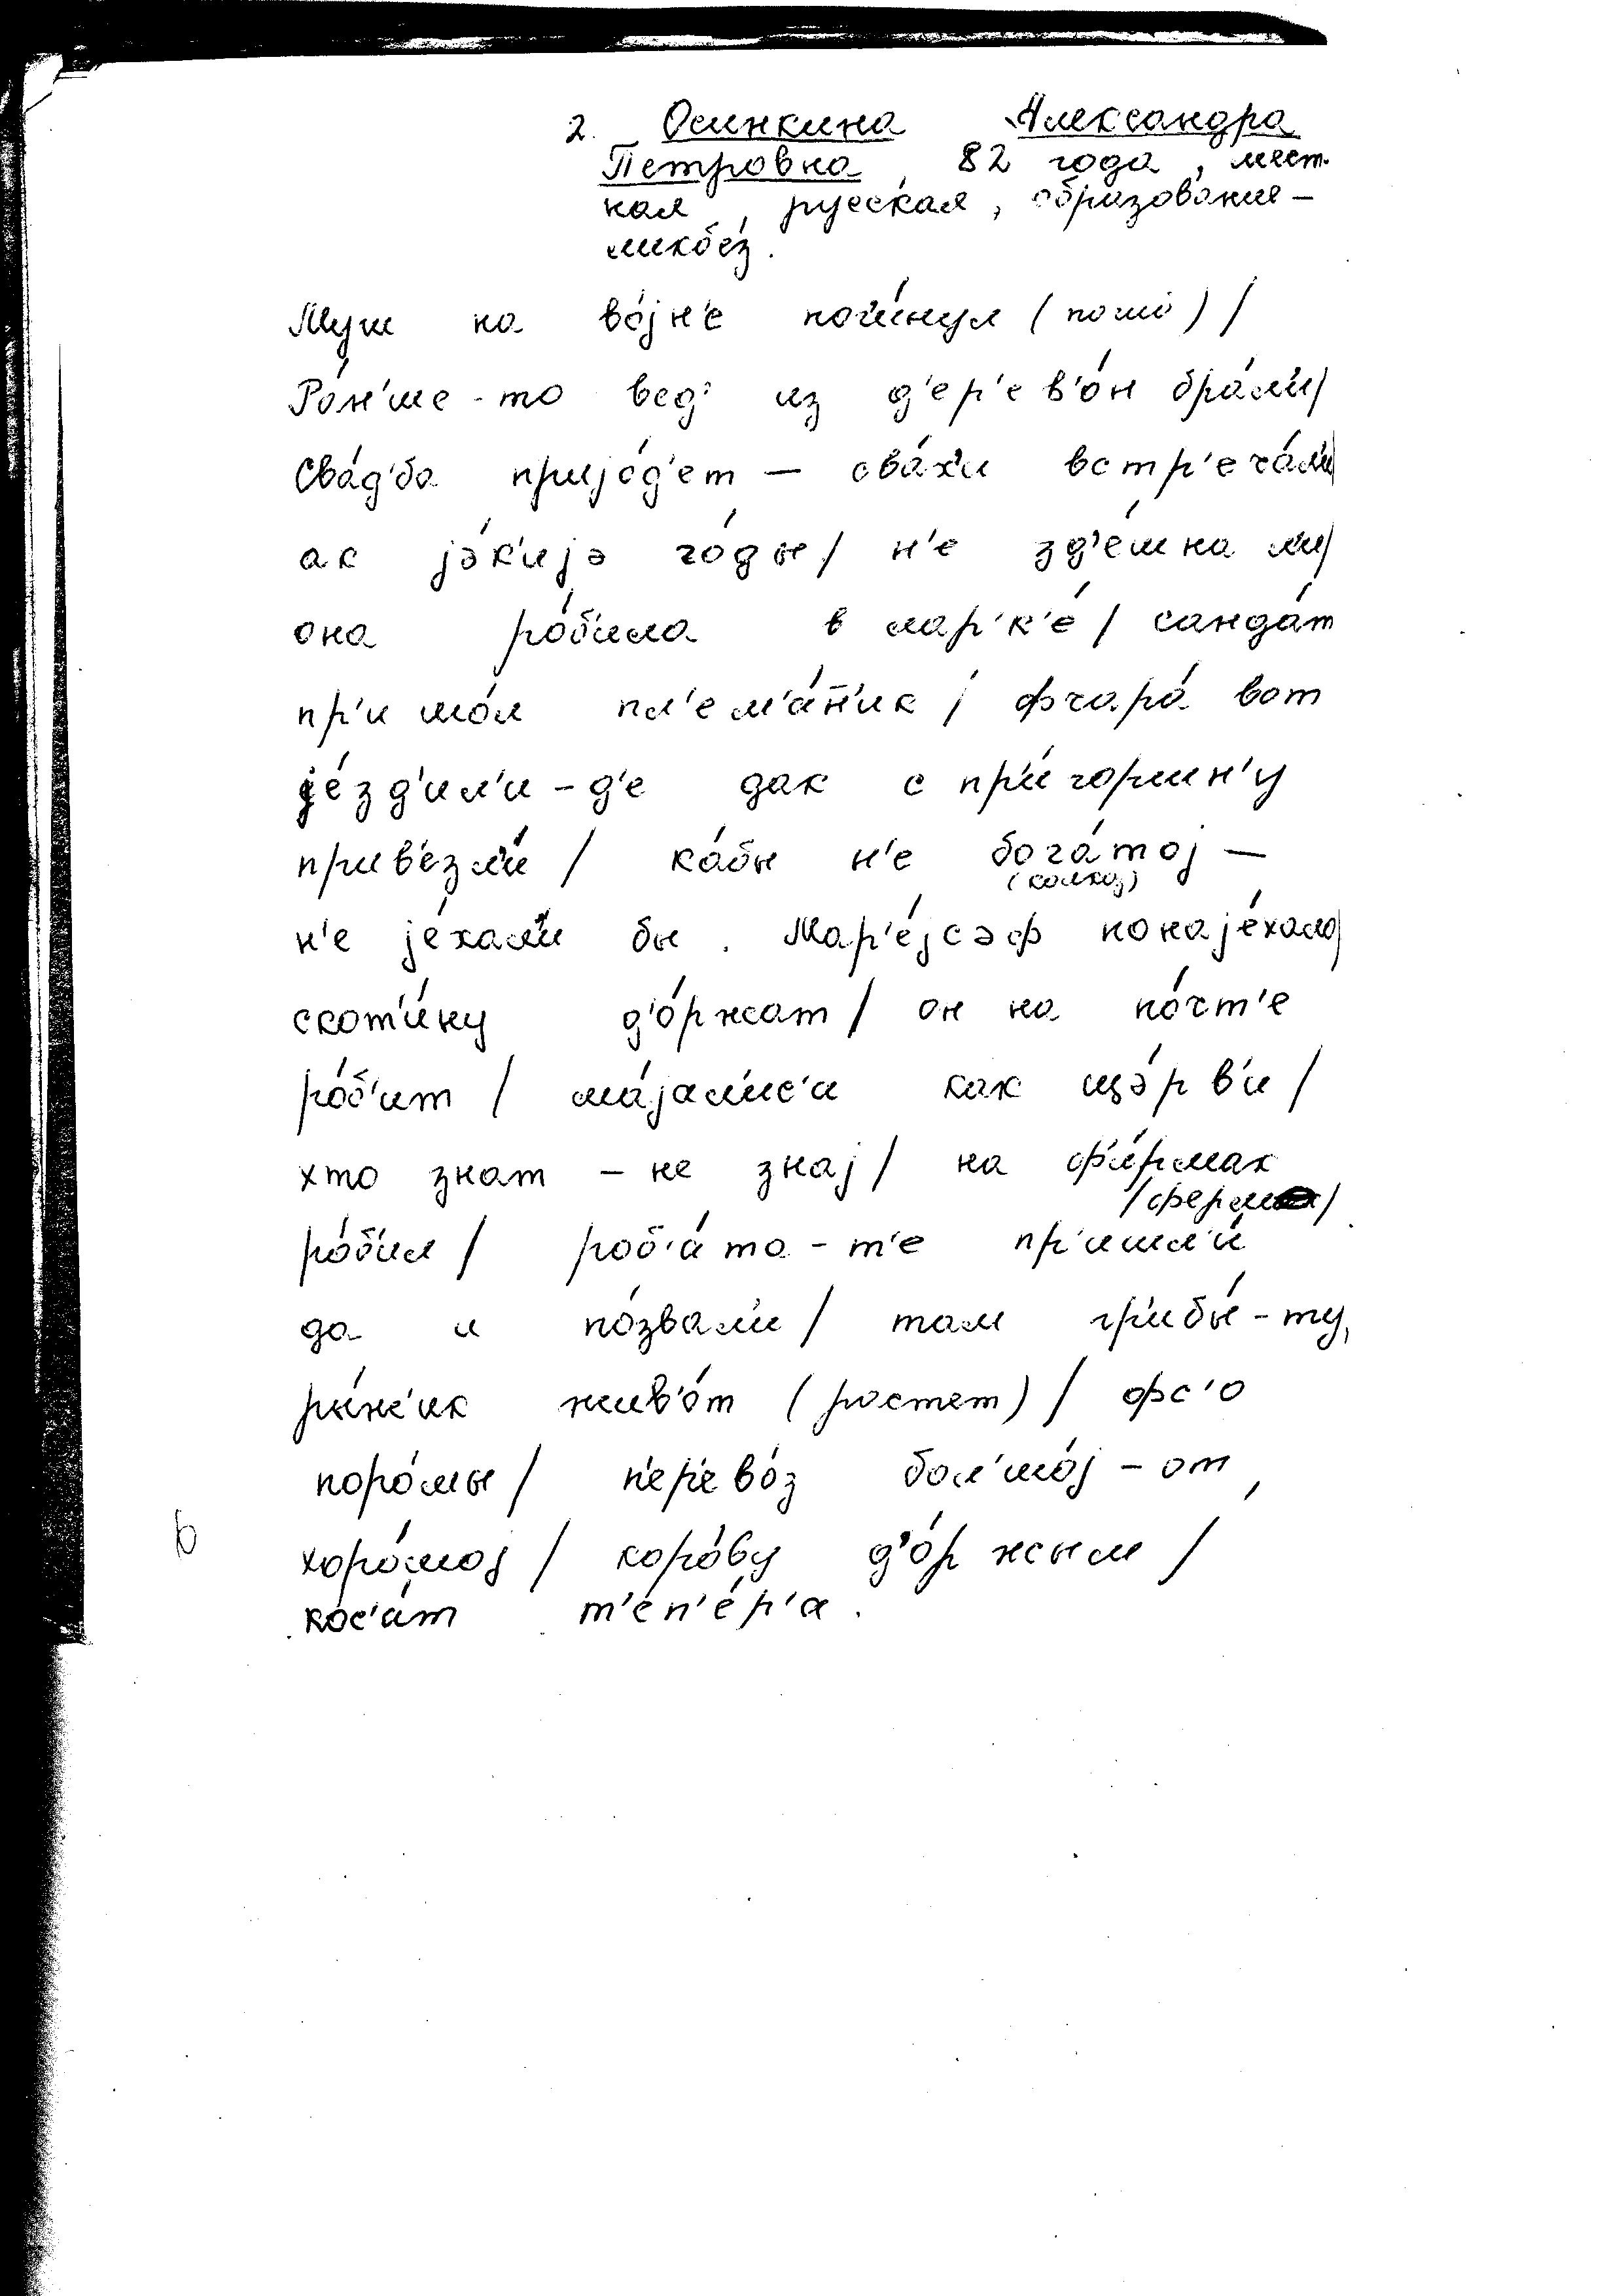 2. Осинкина Александра
Петровна, 82 года, мест-
ная, русская, образование –
ликбез.
Муш на во́јн'е поги́нул (поги́) /
Ро́н'ше-то вед' из д'ер'ев'о́н бра́л'и/
Сва́д'ба прије́д'ет – сва́х'и встр'еча́л'и/
ак јэ́к'ијэ го́ды / н'е зд'е́шна л'и/
она ро́б'ила в лар'к'е́ / санда́т
пр'ишо́л пл'ем'а́н̄'ик / фчара́ вот
је́зд'ил'и-д'е дак с при́горшн'у
прив'езл'и́ / ка́бы н'е бога́тој –
(колхоз)
н'е је́хал'и бы. Мар'е́јсэф понаје́хало/
скот'и́ну д'о́ржат / он на по́чт'е
ро́б'ит / ма́јал'ис'а как цэ́рв'и /
хто знат – не знај / на ф'и́рмах
/фермах/
ро́б'ил / роб'а́та-т'е пр'ишл'и́
да и по́звал'и / там гр'ибы́-ту,
ры́ж'ик жив'о́т (растет) / фс'о
поро́мы / п'ер'ево́з бол'шо́ј-от,
хоро́шој / коро́ву д'о́ржым /
ко́с'а́т т'е́п'е́р'а.